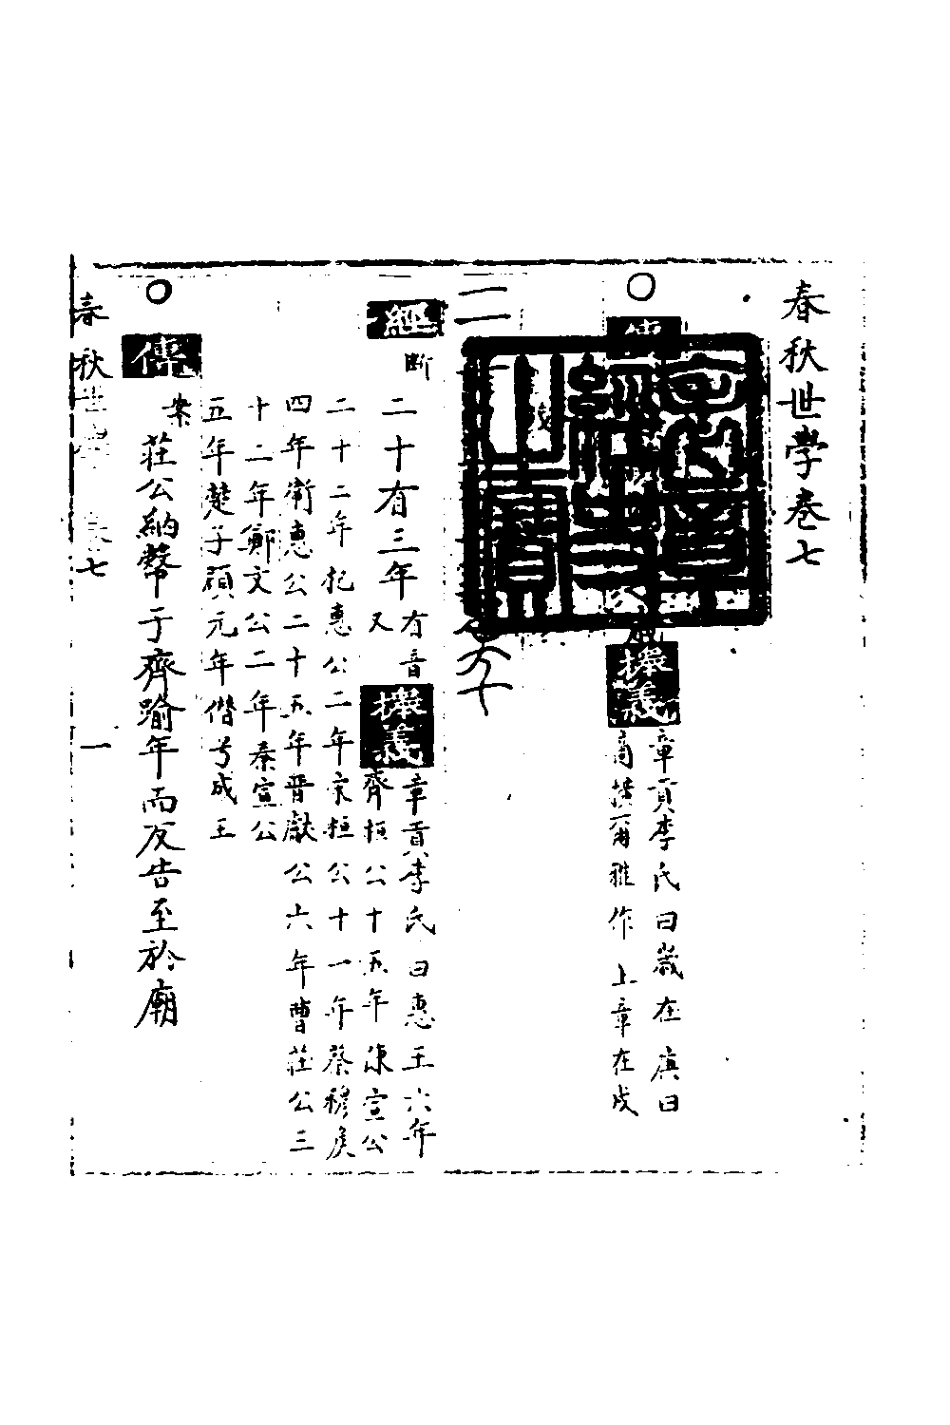 春秋世學卷七
○傳
擇義
章貢李氏曰歲在庚曰
商橫爾雅作上章在戌
二
經
斷
二十有三年
有音
又
擇義
章貢李氏曰惠王六年
齊桓公十五年陳宣公
二十二年杞惠公二年宋桓公十一年蔡穆侯
四年衛惠公二十五年晉獻公六年曹莊公三
十二年鄭文公二年秦宣公
五年楚子頵元年僭号成王
○傳
案
莊公納幣于齊踰年而反告至於廟
春秋世學 卷七
一